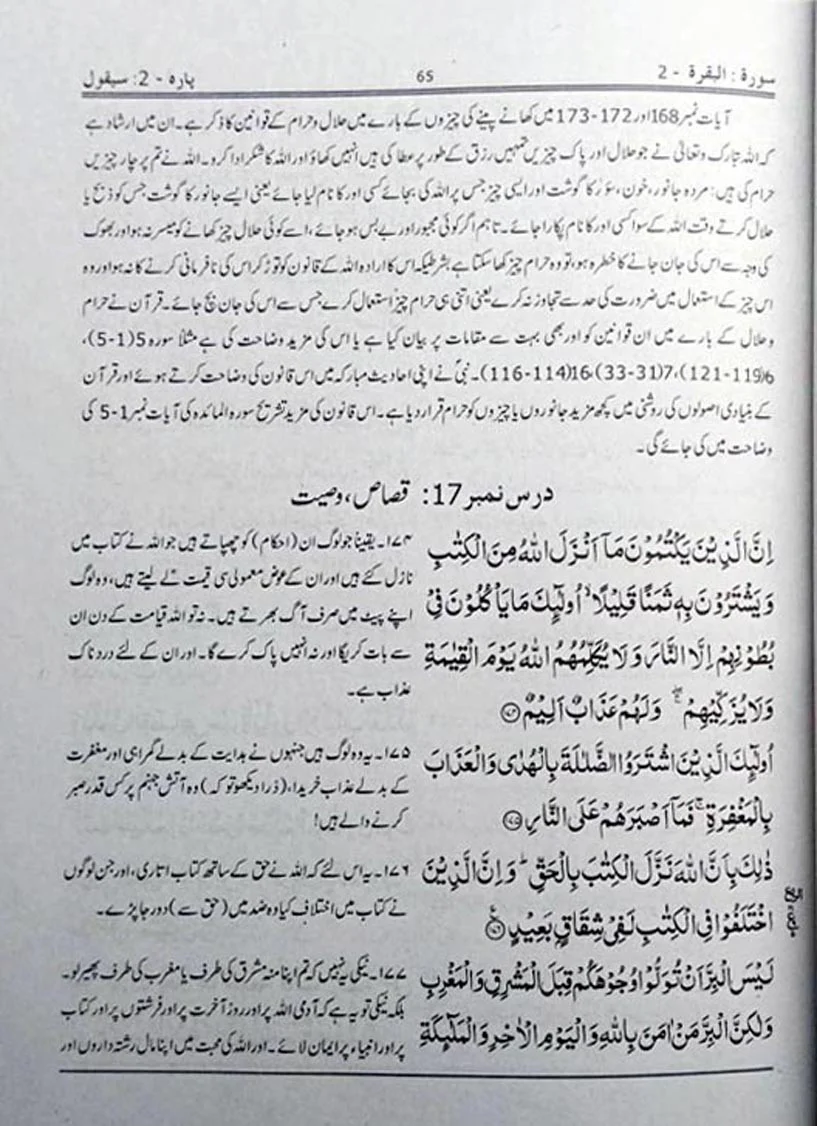 سورۃ : البقرۃ - 2 65 پارہ - 2: سیقول
آیات نمبر 168 اور 172-173 میں کھانے پینے کی چیزوں کے بارے میں حلال و حرام کے قوانین کا ذکر ہے۔ ان میں ارشاد ہے
کہ اللہ تبارک وتعالیٰ نے جو حلال اور پاک چیزیں تمہیں رزق کے طور پر عطا کی ہیں انہیں کھاؤ اور اللہ کا شکر ادا کرو۔ اللہ نے تم پر چار چیزیں
حرام کی ہیں: مردہ جانور، خون، سؤر کا گوشت اور ایسی چیز جس پر اللہ کی بجائے کسی اور کا نام لیا جائے یعنی ایسے جانور کا گوشت جس کو ذبح یا
حلال کرتے وقت اللہ کے سوا کسی اور کا نام پکارا جائے۔ تاہم اگر کوئی مجبور اور بے بس ہو جائے، اسے کوئی حلال چیز کھانے کو میسر نہ ہو اور بھوک
کی وجہ سے اس کی جان جانے کا خطرہ ہو، تو وہ حرام چیز کھا سکتا ہے بشرطیکہ اس کا ارادہ اللہ کے قانون کو توڑ کر اس کی نافرمانی کرنے کا نہ ہو اور وہ
اس چیز کے استعمال میں ضرورت کی حد سے تجاوز نہ کرے یعنی اتنی ہی حرام چیز استعمال کرے جس سے اس کی جان بچ جائے۔ قرآن نے حرام
و حلال کے بارے میں ان قوانین کو اور بھی بہت سے مقامات پر بیان کیا ہے یا اس کی مزید وضاحت کی ہے مثلاً سورہ 5(1-5)،
6(119-121)، 7(31-33)، 16(114-116)۔ نبیؐ نے اپنی احادیث مبارکہ میں اس قانون کی وضاحت کرتے ہوئے اور قرآن
کے بنیادی اصولوں کی روشنی میں کچھ مزید جانوروں یا چیزوں کو حرام قرار دیا ہے۔ اس قانون کی مزید تشریح سورہ المائدہ کی آیات نمبر 1-5 کی
وضاحت میں کی جائے گی۔
درس نمبر 17: قصاص، وصیت
اِنَّ الَّذِيْنَ يَكْتُمُوْنَ مَآ اَنْزَلَ اللّٰهُ مِنَ الْكِتٰبِ
وَيَشْتَرُوْنَ بِهٖ ثَمَنًا قَلِيْلًا ۙ اُولٰٓىِٕكَ مَا يَاْكُلُوْنَ فِيْ
بُطُوْنِهِمْ اِلَّا النَّارَ وَلَا يُكَلِّمُهُمُ اللّٰهُ يَوْمَ الْقِيٰمَةِ
وَلَا يُزَكِّيْهِمْ ۖۚ وَلَهُمْ عَذَابٌ اَلِيْمٌ ۝۱۷۴
۱۷۴۔ یقیناً جو لوگ ان (احکام) کو چھپاتے ہیں جو اللہ نے کتاب میں
نازل کئے ہیں اور ان کے عوض معمولی سی قیمت لے لیتے ہیں، وہ لوگ
اپنے پیٹ میں صرف آگ بھرتے ہیں۔ نہ تو اللہ قیامت کے دن ان
سے بات کریگا اور نہ انہیں پاک کرے گا۔ اور ان کے لئے دردناک
عذاب ہے۔
اُولٰٓىِٕكَ الَّذِيْنَ اشْتَرَوُا الضَّلٰلَةَ بِالْهُدٰى وَالْعَذَابَ
بِالْمَغْفِرَةِ ۚ فَمَآ اَصْبَرَهُمْ عَلَى النَّارِ ۝۱۷۵
۱۷۵۔ یہ وہ لوگ ہیں جنہوں نے ہدایت کے بدلے گمراہی اور مغفرت
کے بدلے عذاب خریدا، (ذرا دیکھو تو کہ) وہ آتش جہنم پر کس قدر صبر
کرنے والے ہیں!
ذٰلِكَ بِاَنَّ اللّٰهَ نَزَّلَ الْكِتٰبَ بِالْحَقِّ ۭ وَاِنَّ الَّذِيْنَ
اخْتَلَفُوْا فِي الْكِتٰبِ لَفِيْ شِقَاقٍۭ بَعِيْدٍ ۝۱۷۶
۱۷۶۔ یہ اس لئے کہ اللہ نے حق کے ساتھ کتاب اتاری، اور جن لوگوں
نے کتاب میں اختلاف کیا وہ ضد میں (حق سے) دور جا پڑے۔
لَيْسَ الْبِرَّ اَنْ تُوَلُّوْا وُجُوْهَكُمْ قِبَلَ الْمَشْرِقِ وَالْمَغْرِبِ
وَلٰكِنَّ الْبِرَّ مَنْ اٰمَنَ بِاللّٰهِ وَالْيَوْمِ الْاٰخِرِ وَالْمَلٰٓىِٕكَةِ
۱۷۷۔ نیکی یہ نہیں کہ تم اپنا منہ مشرق کی طرف یا مغرب کی طرف پھیر لو۔
بلکہ نیکی تو یہ ہے کہ آدمی اللہ پر اور روز آخرت پر اور فرشتوں پر اور کتاب
پر اور انبیاء پر ایمان لائے۔ اور اللہ کی محبت میں اپنا مال رشتہ داروں اور